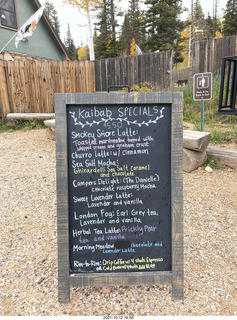 Kaibab SPECIALS
Smokey S'more Latte:
Toasted marshmallow breve with
whipped cream and graham crust
Churro Latte: w/ Cinnamon
Sea Salt Mocha:
Ghirardelli Sea Salt Caramel
and chocolate
Campers Delight: (The Danielle)
chocolate raspberry Mocha
Sweet Lavender Latte:
Lavender and vanilla
London Fog: Earl Grey tea,
Lavender and vanilla
Herbal Tea Latte: Prickly Pear
tea and vanilla
Morning Meadow chocolate and
lavender Latte
Rim-to-Rim: Drip Coffee w/ 4 shots Espresso